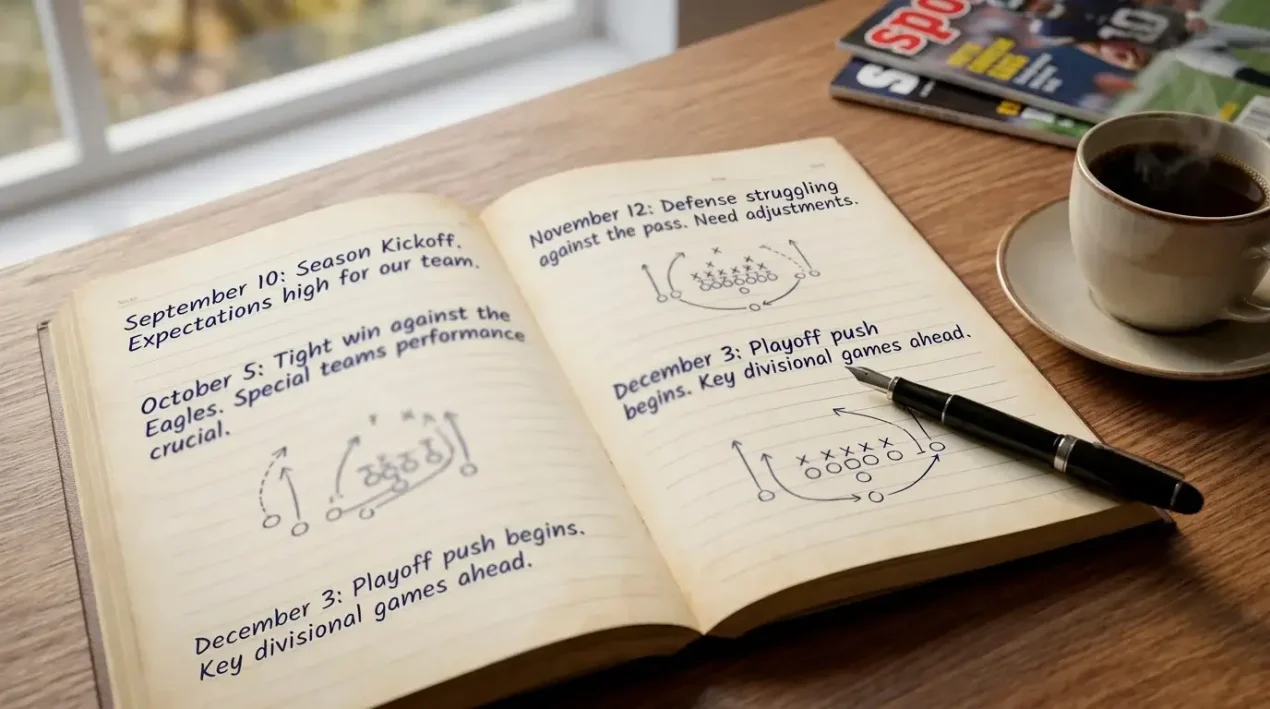 September 10: Season Kickoff.
Expectations high for our team.
October 5: Tight win against the
Eagles. Special teams performance
crucial.
December 3: Playoff push begins.
Key divisional games ahead.
November 12: Defense struggling
against the pass. Need adjustments.
December 3: Playoff push
begins. Key divisional games ahead.
spo
S
10